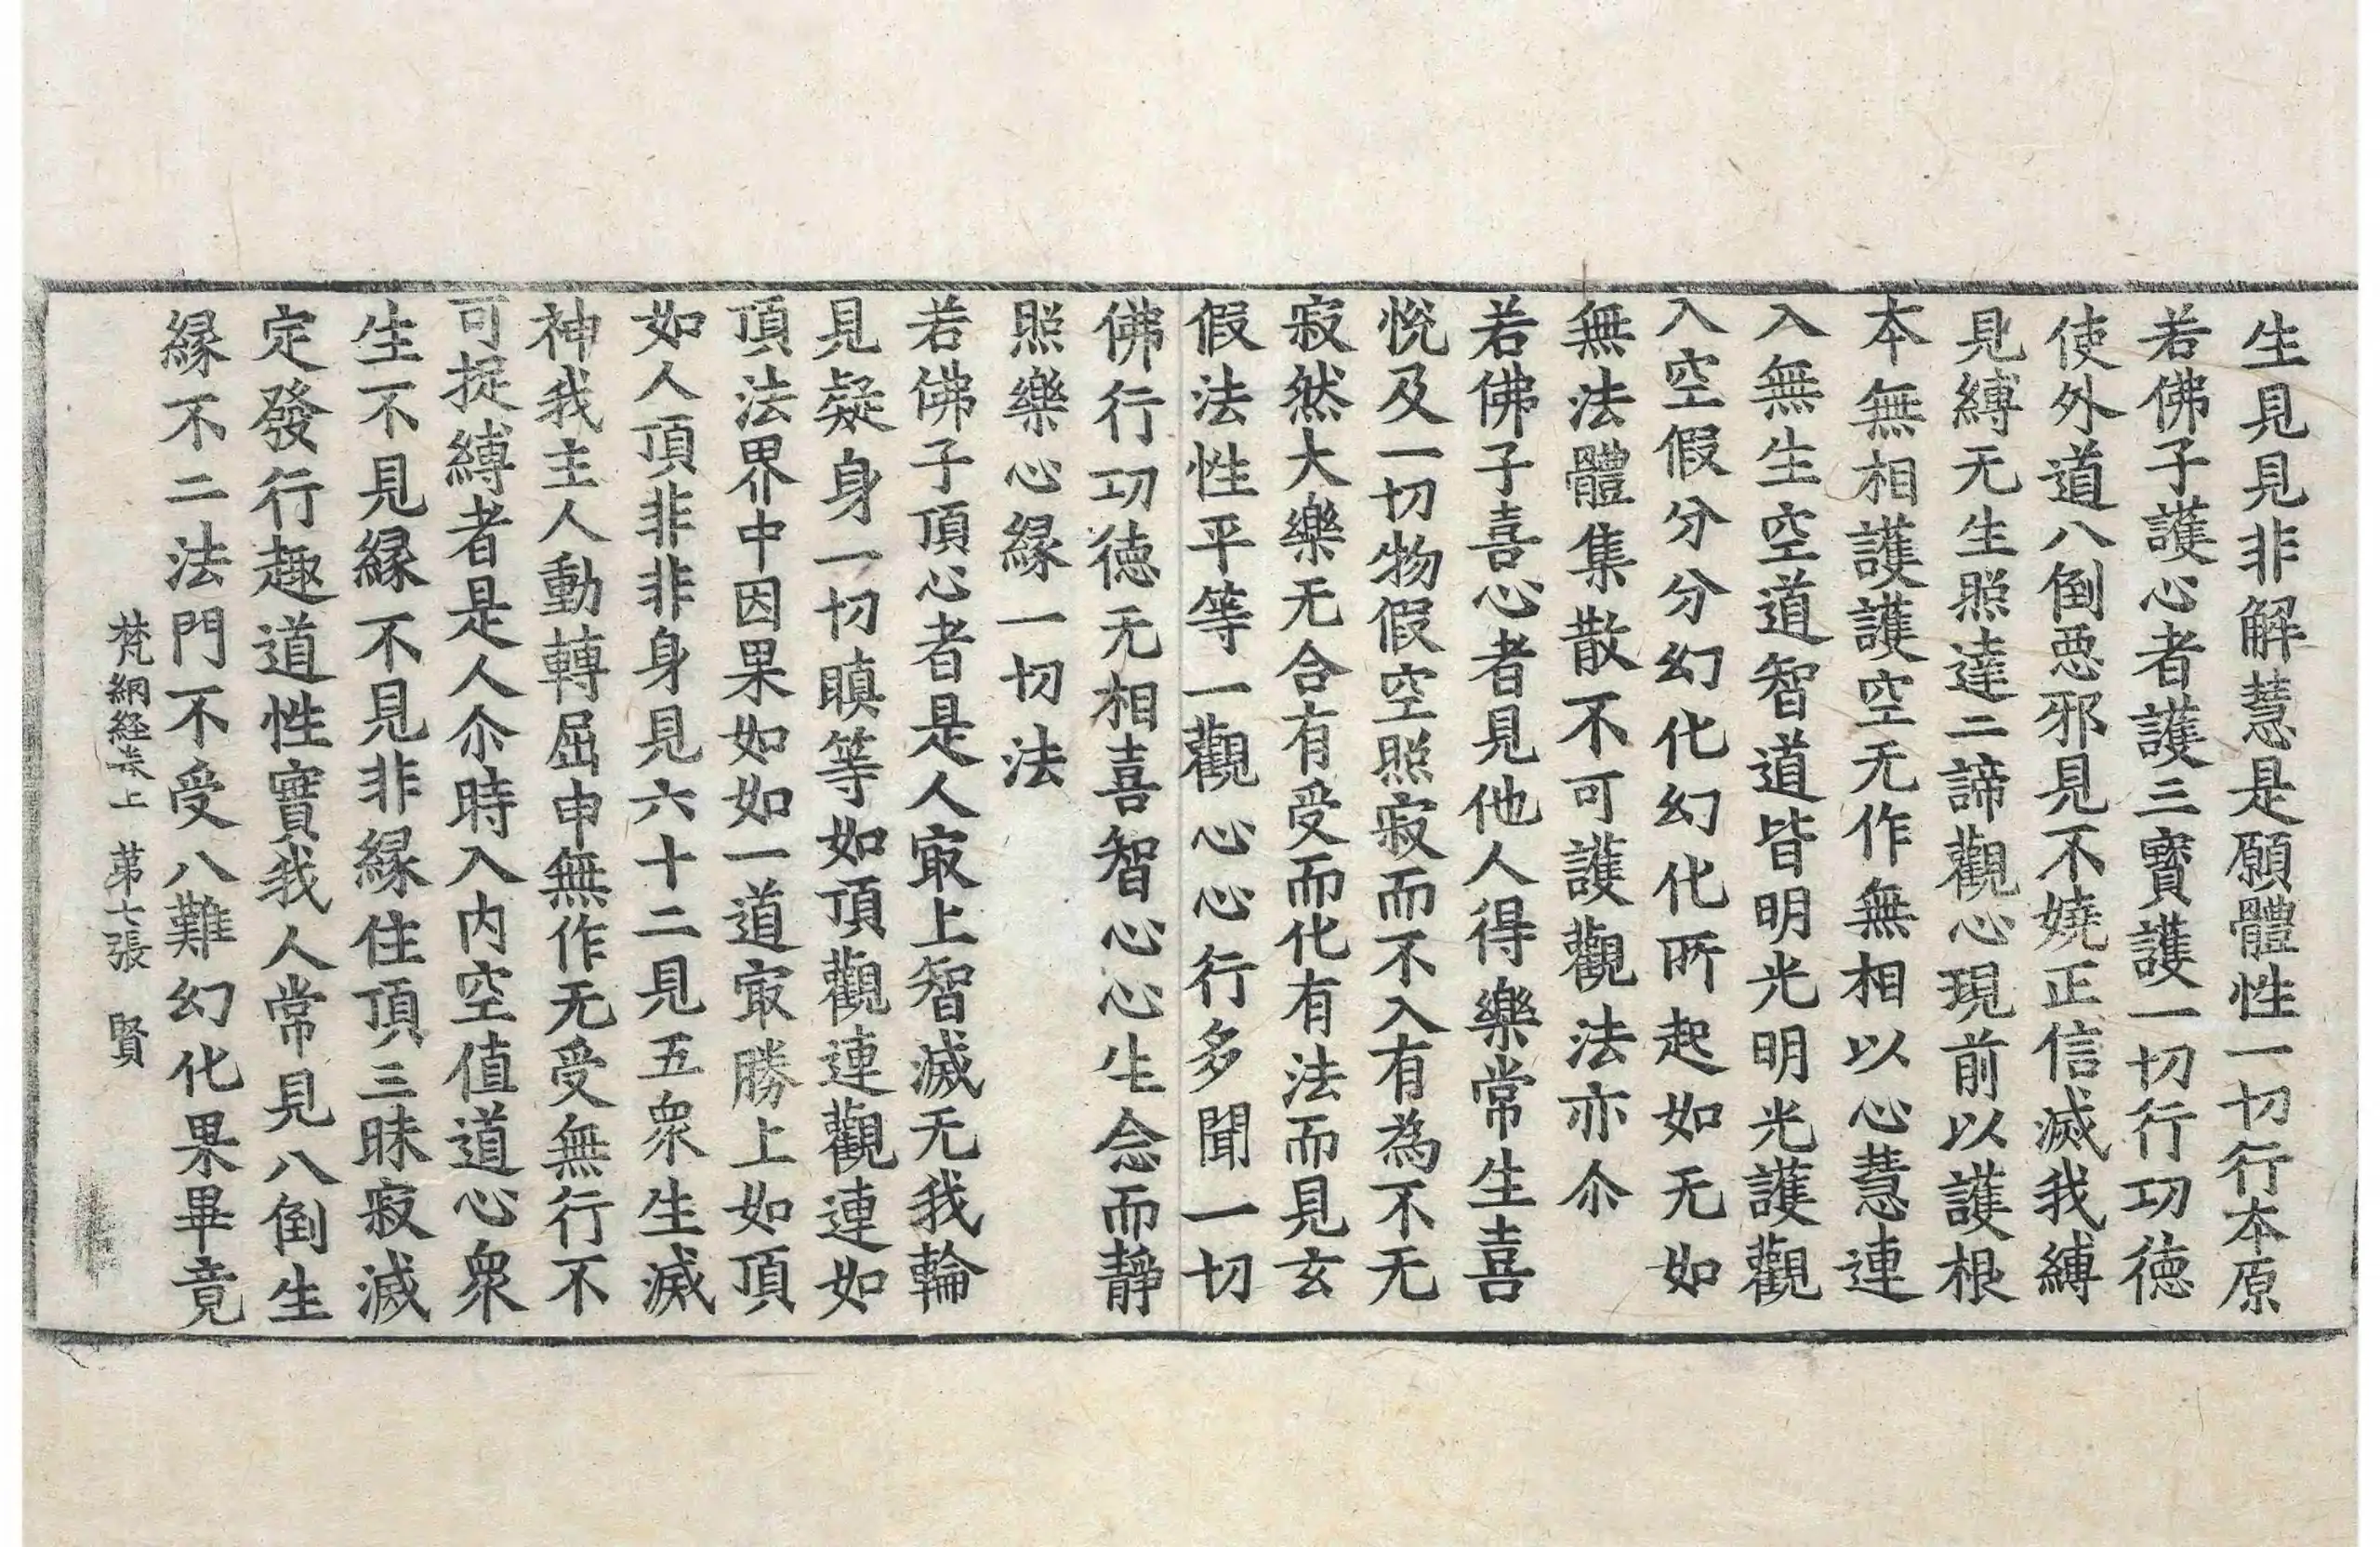 生見見非解慧是願體性一切行本原
若佛子護心者護三寶護一切行功徳
使外道八倒惡邪見不嬈正信滅我縛
見縛无生照達二諦觀心現前以護根
本無相護護空无作無相以心慧連
入無生空道智道皆明光明光護觀
入空假分分幻化幻化所起如无如
無法體集散不可護觀法亦尒
若佛子喜心者見他人得樂常生喜
悅及一切物假空照寂而不入有為不无
寂然大樂无合有受而化有法而見玄
假法性平等一觀心心行多聞一切
佛行功徳无相喜智心心生念而靜
照樂心緣一切法
若佛子頂心者是人㝡上智滅无我輪
見疑身一切瞋等如頂觀連觀連如
頂法界中因果如如一道㝡勝上如頂
如人頂非非身見六十二見五衆生滅
神我主人動轉屈申無作无受無行不
可捉縛者是人尒時入内空值道心衆
生不見緣不見非緣住頂三昧寂滅
定發行趣道性實我人常見八倒生
緣不二法門不受八難幻化果畢竟
梵網経卷上 苐七張 賢